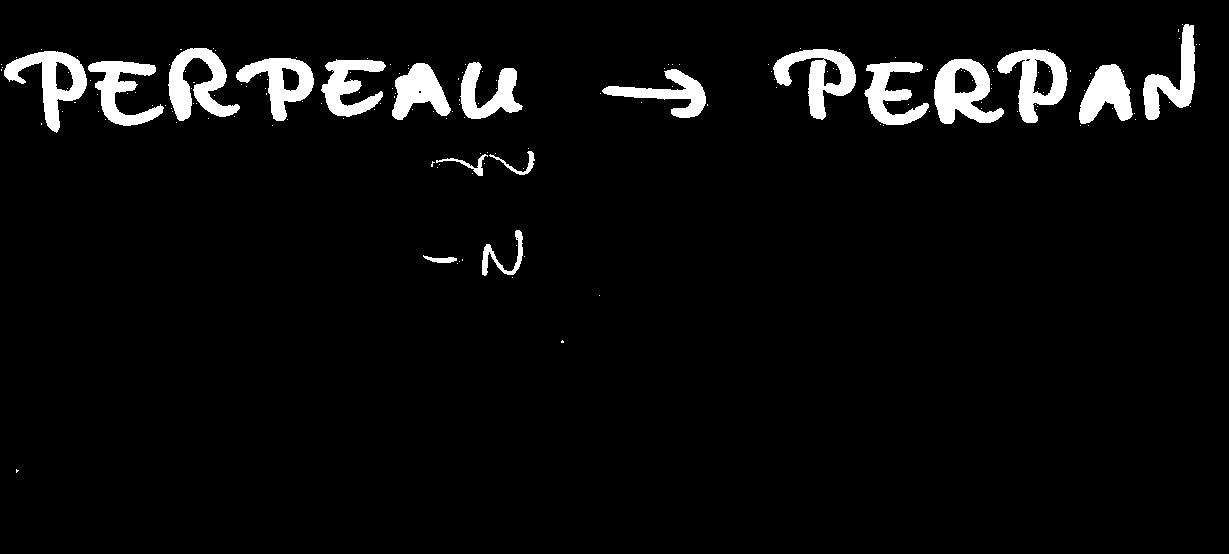 PERPEAU → PERPAN
~N
-N